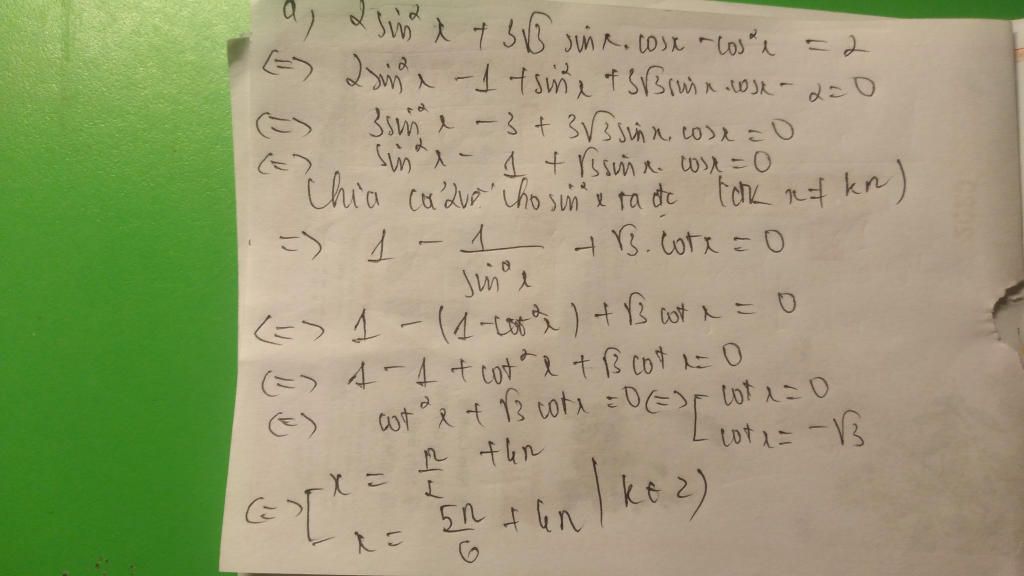 a, 2sin²x + 3√3 sinx.cosx - cos²x = 2
<=> 2sin²x - 1 + sin²x + 3√3sinx.cosx - 2=0
<=> 3sin²x - 3 + 3√3sinx.cosx = 0
<=> sin²x - 1 + √3sinx.cosx = 0
Chia cả 2 vế cho sin²x ta đc (đk x≠kπ)
=> 1 - 1/sin²x + √3.cotx = 0
<=> 1 - (1-cot²x) + √3 cot x = 0
<=> 1 - 1 + cot²x + √3 cot x = 0
<=> cot²x + √3 cotx = 0 <=> [ cot x = 0
cot x = -√3
<=> [ x = π/2 + kπ
x = 5π/6 + kπ (k∈Z)